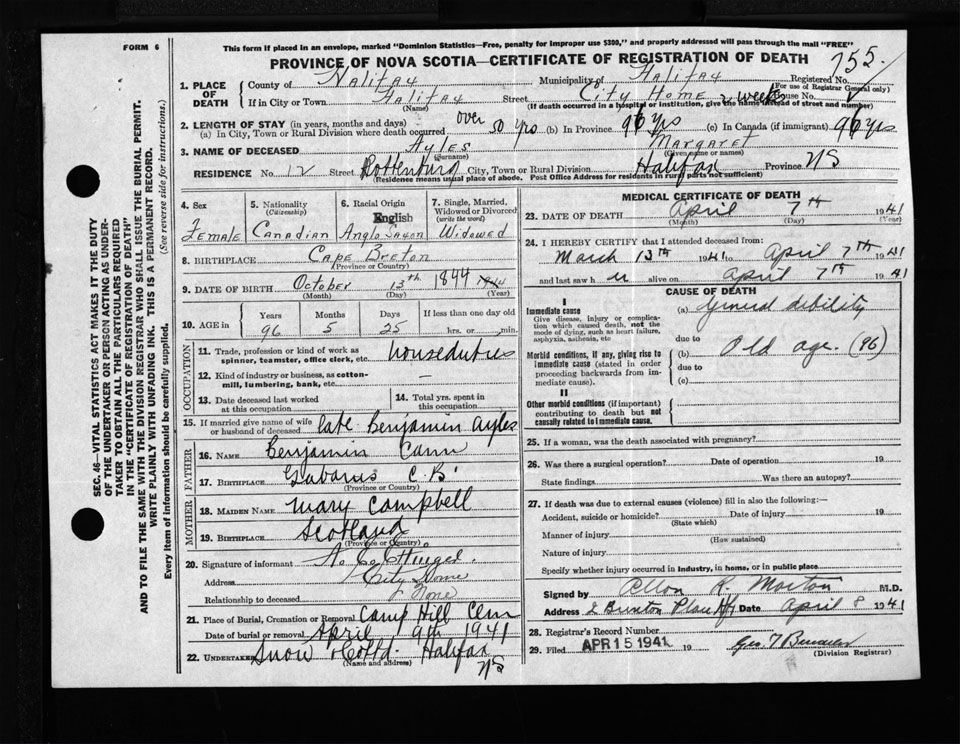 FORM 6
This form if placed in an envelope, marked "Dominion Statistics—Free, penalty for improper use $300," and properly addressed will pass through the mail "FREE"
PROVINCE OF NOVA SCOTIA—CERTIFICATE OF REGISTRATION OF DEATH
755
1. PLACE OF DEATH
County of Halifax Municipality of Halifax Registered No.
(For use of Registrar General only)
If in City or Town Halifax Street City Home 2 weeks House No.
(Name) (If death occurred in a hospital or institution, give the name instead of street and number)
2. LENGTH OF STAY (in years, months and days)
(a) In City, Town or Rural Division where death occurred over 50 yrs (b) In Province 96 yrs (c) In Canada (if immigrant) 96 yrs
3. NAME OF DECEASED Ayles Margaret
(Surname) (Given name or names)
RESIDENCE No. 12 Street Rottenburg City, Town or Rural Division Halifax Province NS
(Residence means usual place of abode. Post Office Address for residents in rural parts not sufficient)
4. Sex
Female
5. Nationality
(Citizenship)
Canadian
6. Racial Origin
English
Anglo Saxon
7. Single, Married, Widowed or Divorced
(write the word)
Widowed
8. BIRTHPLACE Cape Breton
(Province or Country)
9. DATE OF BIRTH October 13th 1844
(Month) (Day) (Year)
10. AGE in
Years Months Days If less than one day old
96 5 25 hrs. or min.
OCCUPATION
11. Trade, profession or kind of work as spinner, teamster, office clerk, etc. houseduties
12. Kind of industry or business, as cotton-mill, lumbering, bank, etc. —
13. Date deceased last worked at this occupation
14. Total yrs. spent in this occupation
15. If married give name of wife or husband of deceased late Benjamin Ayles
FATHER
16. NAME Benjamin Cann
17. BIRTHPLACE Gabarus C.B.
(Province or Country)
MOTHER
18. MAIDEN NAME Mary Campbell
19. BIRTHPLACE Scotland
(Province or Country)
20. Signature of informant
Address City Home
Relationship to deceased None
21. Place of Burial, Cremation or Removal Camp Hill Cem
Date of burial or removal April 9th 1941
22. UNDERTAKER Snow & Co Ltd. Halifax
(Name and address) NS
MEDICAL CERTIFICATE OF DEATH
23. DATE OF DEATH April 7th 1941
(Month) (Day) (Year)
24. I HEREBY CERTIFY that I attended deceased from:
March 13th 1941 to April 7th 1941
and last saw h er alive on April 7th 1941
CAUSE OF DEATH
I
Immediate cause
Give disease, injury or complication which caused death, not the mode of dying, such as heart failure, asphyxia, asthenia, etc
(a) General debility
due to
Morbid conditions, if any, giving rise to immediate cause (stated in order proceeding backwards from immediate cause).
(b) Old age. (96)
due to
(c)
II
Other morbid conditions (if important) contributing to death but not causally related to immediate cause.
25. If a woman, was the death associated with pregnancy?
26. Was there a surgical operation? Date of operation 19
State findings Was there an autopsy?
27. If death was due to external causes (violence) fill in also the following:—
Accident, suicide or homicide? Date of injury 19
(State which)
Manner of injury
(How sustained)
Nature of injury
Specify whether injury occurred in Industry, in home, or in public place
Signed by Allan R. Morton M.D.
Address Date April 8 1941
28. Registrar's Record Number
29. Filed APR 15 1941 19
(Division Registrar)
SEC. 46—VITAL STATISTICS ACT MAKES IT THE DUTY
OF THE UNDERTAKER OR PERSON ACTING AS UNDER-
TAKER TO OBTAIN ALL THE PARTICULARS REQUIRED
IN THE "CERTIFICATE OF REGISTRATION OF DEATH"
AND TO FILE THE SAME WITH THE DIVISION REGISTRAR WHO SHALL ISSUE THE BURIAL PERMIT.
WRITE PLAINLY WITH UNFADING INK. THIS IS A PERMANENT RECORD.
(See reverse side for instructions.)
Every item of information should be carefully supplied.